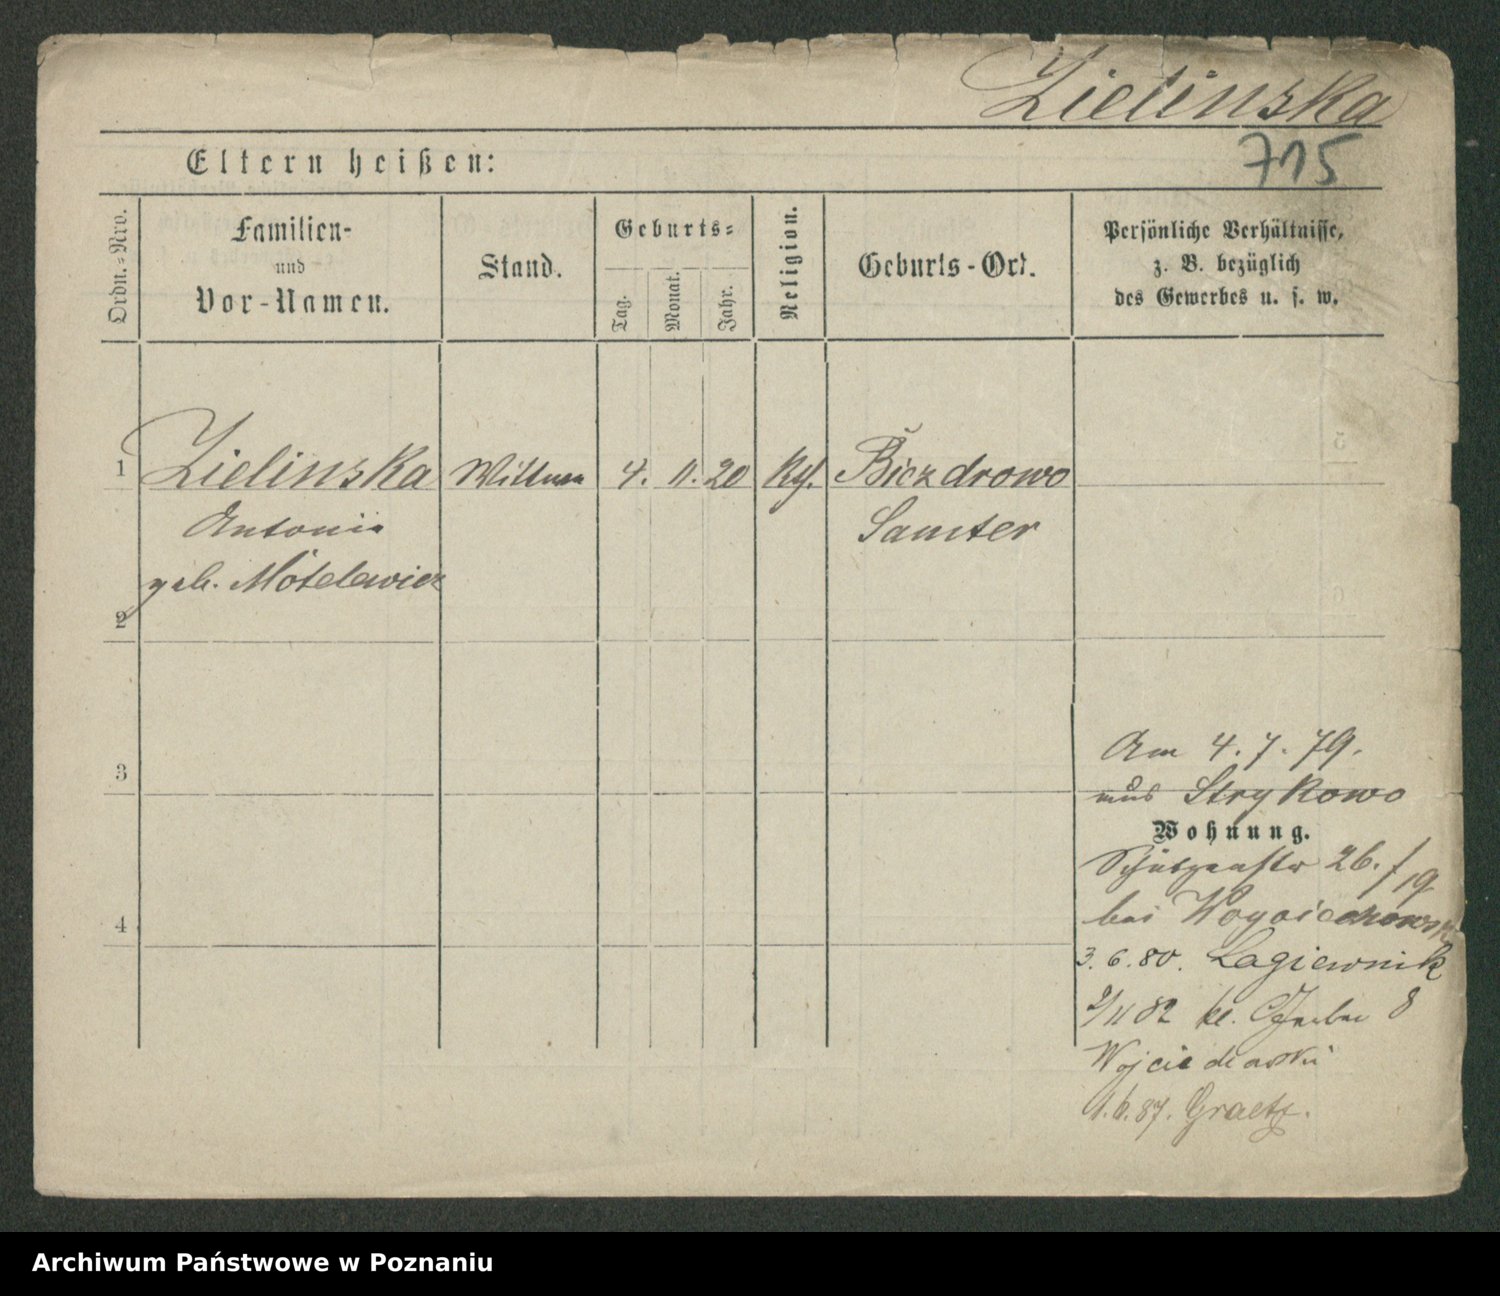 Zielinska
715
Eltern heißen:
Ordn.-Nro.
Familien-
und
Vor-Namen.
Stand.
Geburts-
Tag.
Monat.
Jahr.
Religion.
Geburts-Ort.
Persönliche Verhältnisse,
z. B. bezüglich
des Gewerbes u. s. w.
1 Zielinska Wittwe 4. 11. 20 Kth. Biezdrowo
Antonie Samter
geb. Motelewicz
2
3
4
Am 4. 7. 79.
aus Strykowo
Wohnung.
Schützenstr 26. / 19
bei
3. 6. 80. Lagiewnik
2/11 82 kl. Gerber 8
Wojciechowski
1. 6. 87. Graetz.